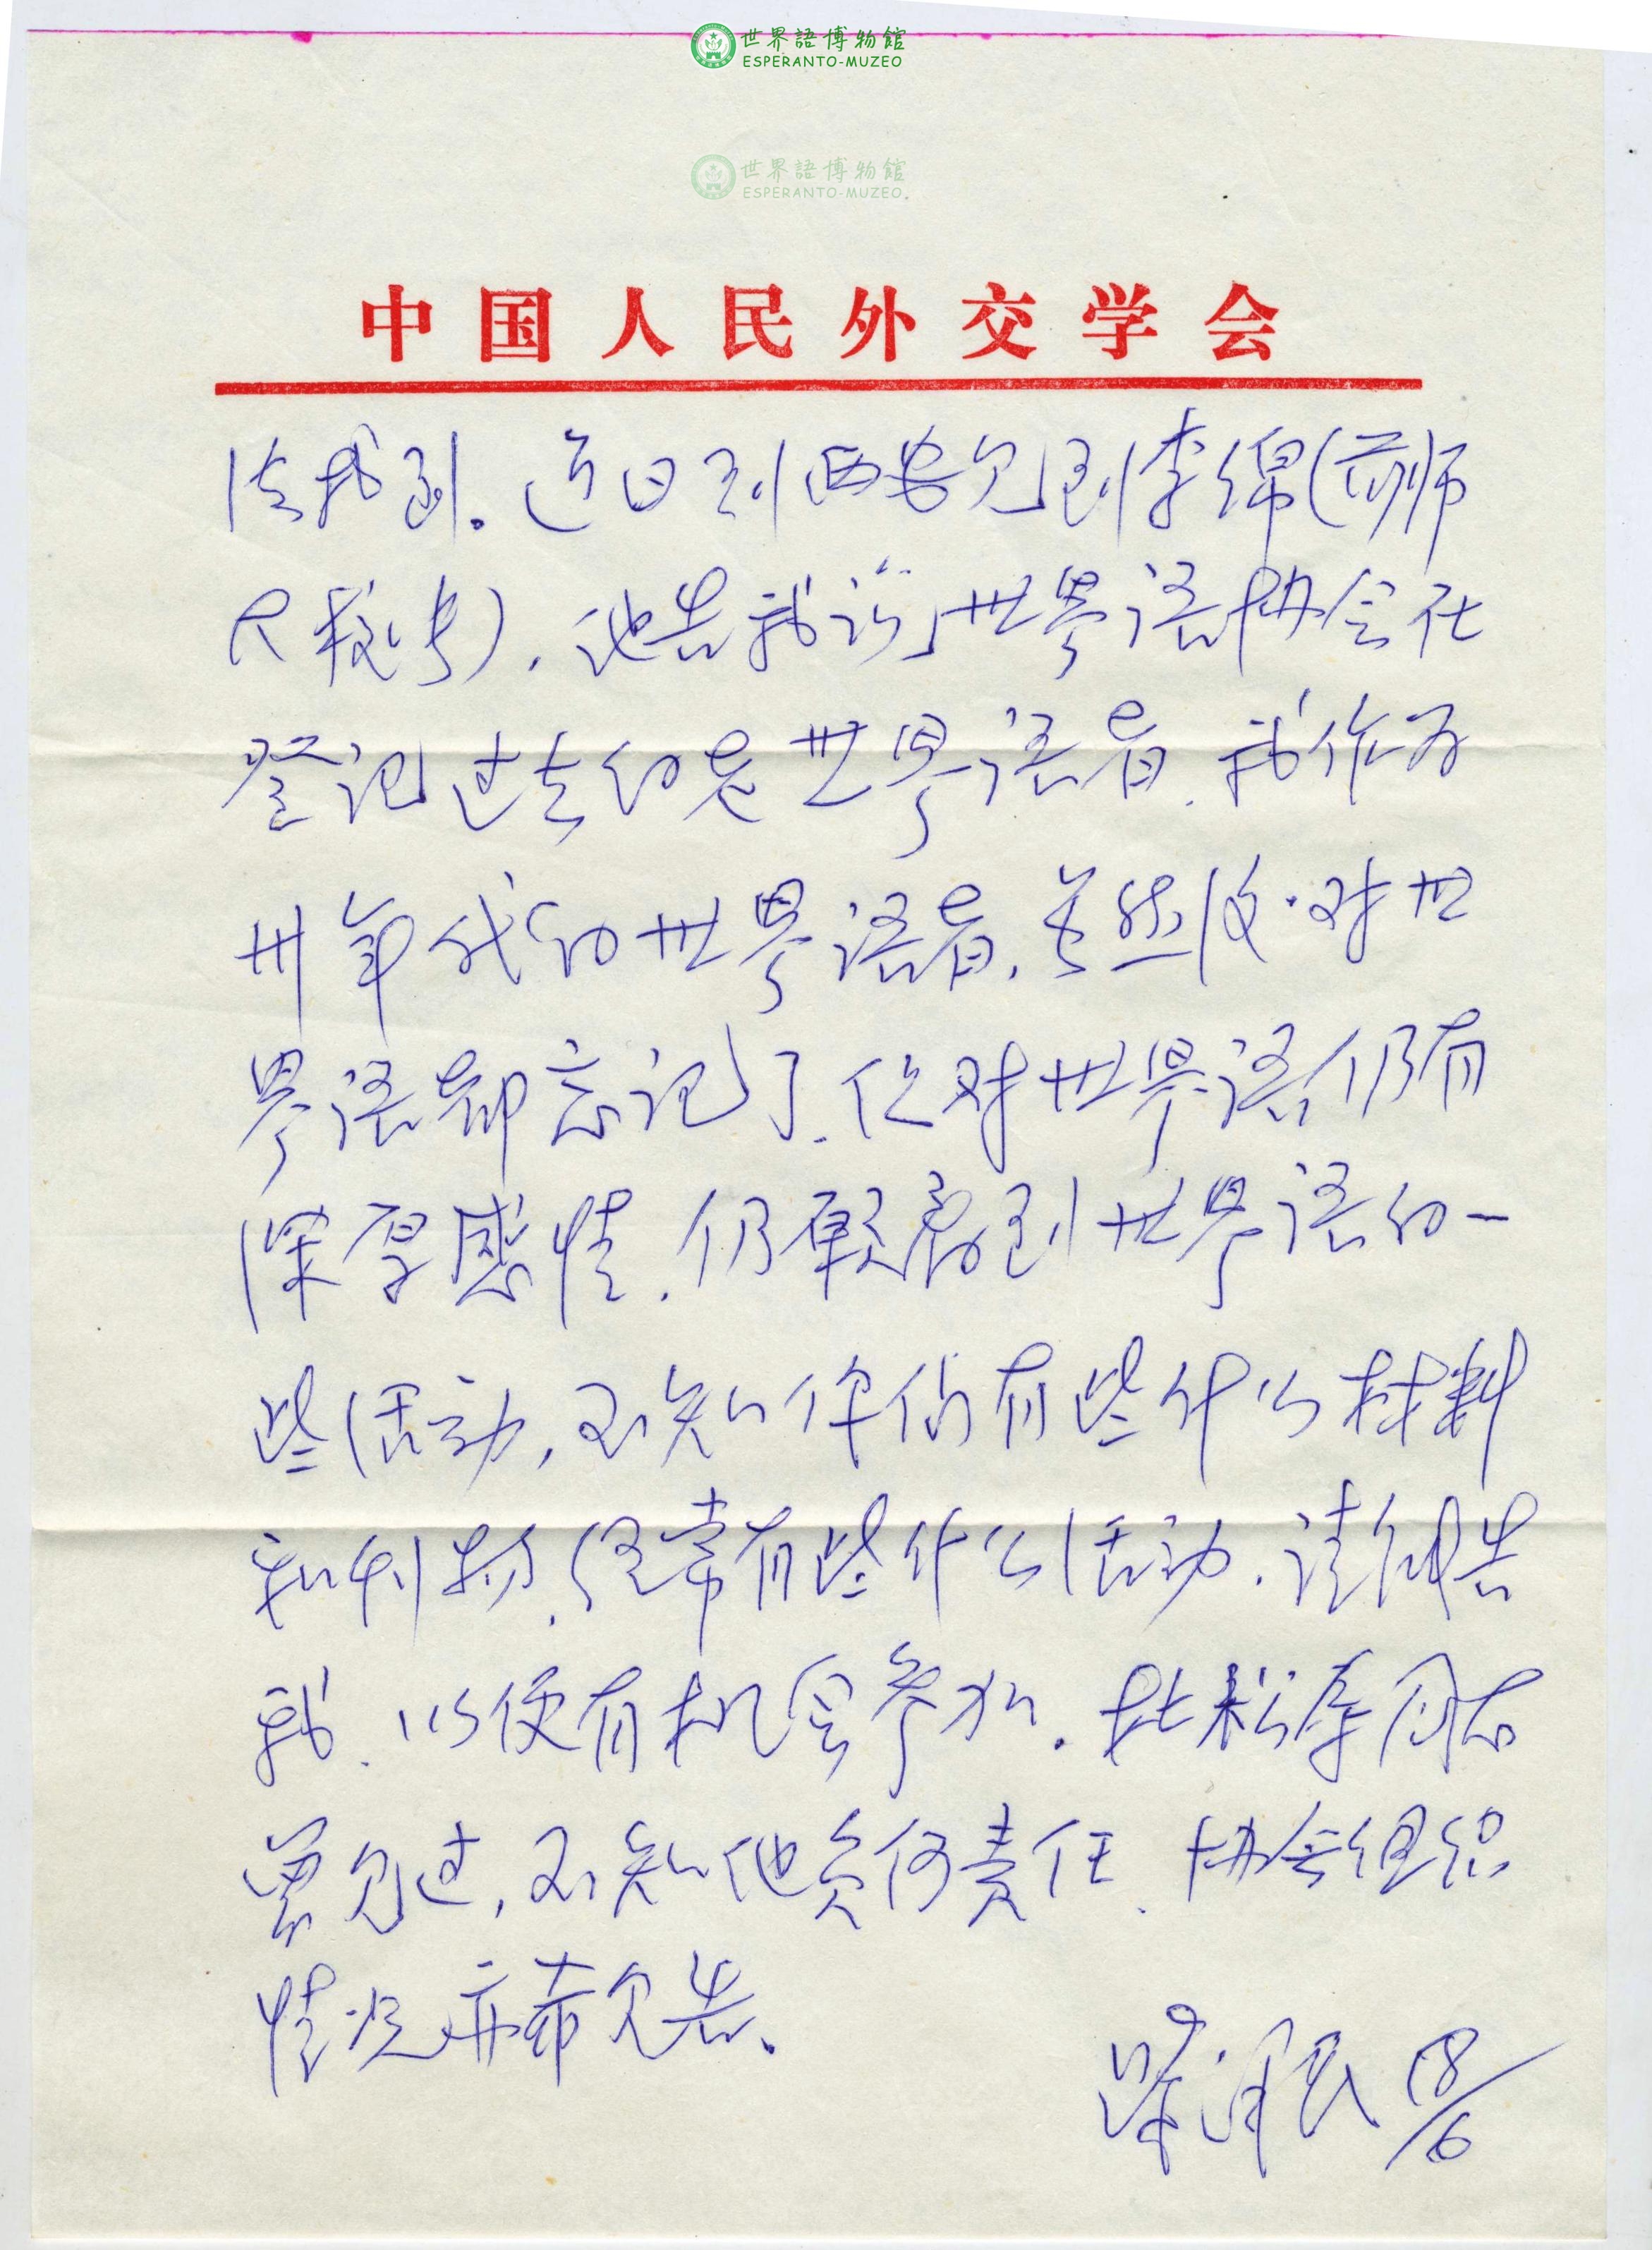 世界語博物館
ESPERANTO-MUZEO
世界語博物館
ESPERANTO-MUZEO
中国人民外交学会
没找到。近日到西安见到李绵(前师
大校长),他告我说,世界语协会在
登记过去的老世界语者.我作为
卅年代的世界语者,虽然后对世
界语都忘记了.但对世界语仍有
深厚感情.仍愿看到世界语的一
些活动,不知你们有些什么材料
和刊物,经常有些什么活动.请便告
我.以便有机会参加.张松寿同志
曾见过,不知他负何责任.协会组织
情况亦希见告.
民 18/6